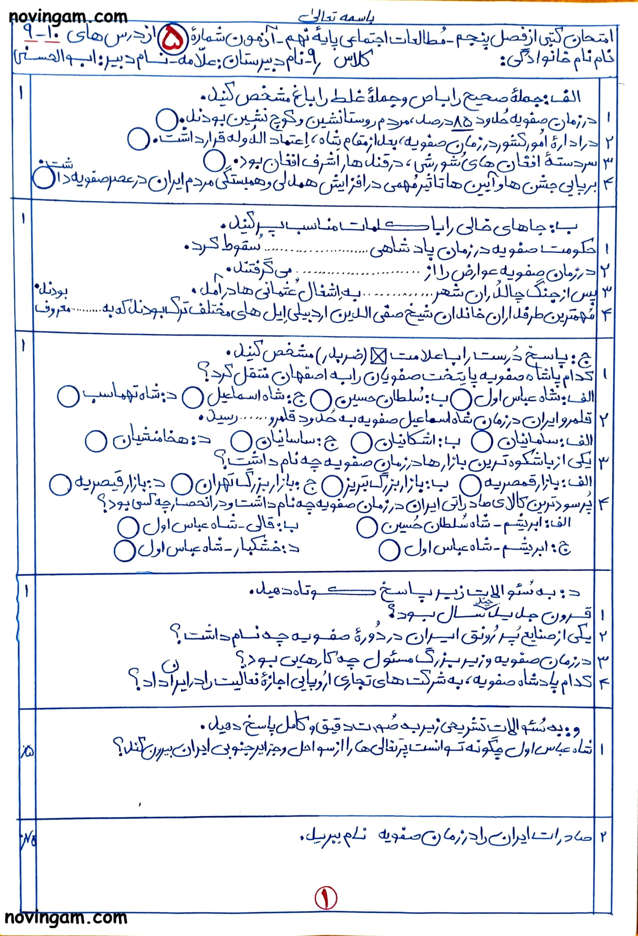 novingam.com
باسمه تعالی
امتحان کتبی از فصل پنجم - مطالعات اجتماعی پایهٔ نهم - آزمون شمارهٔ ۵ از درس های ۱۰-۹
نام نام خانوادگی: کلاس ۹/ نام دبیرستان: علّامه - نام دبیر: ابوالحسنی
الف: جملهٔ صحیح را با ص و جملهٔ غلط را با غ مشخص کنید. ۱
۱ در زمان صفویه حدود ۸۵ درصد، مردم روستانشین و کوچ نشین بودند.
۲ در ادارهٔ امور کشور در زمان صفویه، بعد از مقام شاه، اعتماد الدوله قرار داشت.
۳ سردستهٔ افغان های شورشی، در قندهار اشرف افغان بود.
۴ برپایی جشن ها و آیین ها تأثیر مهمی در افزایش همدلی و همبستگی مردم ایران در عصر صفویه داشت.
ب: جاهای خالی را با کلمات مناسب پر کنید. ۱
۱ حکومت صفویه در زمان پادشاهی .................... سُقوط کرد.
۲ در زمان صفویه عوارض را از .................... می گرفتند.
۳ پس از جنگ چالدُران شهر ............ به اِشغال عُثمانی ها درآمد.
۴ مُهمترین طرفداران خاندان شیخ صفی الدین اردبیلی ایل های مختلف ترک بودند که به ......... معروف بودند.
ج: پاسخ دُرست را با علامت ☒ (ضربدر) مشخص کنید. ۱
۱ کدام پادشاه صفویه پایتخت صفویان را به اصفهان منتقل کرد؟
الف: شاه عباس اول ب: سُلطان حسین ج: شاه اسماعیل د: شاه تهماسب
۲ قلمرو ایران در زمان شاه اسماعیل صفویه به حُدود قلمرو ...... رسید.
الف: سامانیان ب: اشکانیان ج: ساسانیان د: هخامنشیان
۳ یکی از باشکوه ترین بازارها در زمان صفویه چه نام داشت؟
الف: بازار قمصریه ب: بازار بزرگ تبریز ج: بازار بزرگ تهران د: بازار قیصریه
۴ پُرسودترین کالای صادراتی ایران در زمان صفویه چه نام داشت و در انحصار چه کسی بود؟
الف: ابریشم - شاه سُلطان حُسین ب: قالی - شاه عباس اول
ج: ابریشم - شاه عباس اول د: خشکبار - شاه عباس اول
د: به سُئوالات زیر پاسخ کوتاه دهید. ۱
۱ قرون جدید چند سال بود؟
۲ یکی از صنایع پُر رُونق ایران در دُورهٔ صفویه چه نام داشت؟
۳ در زمان صفویه وزیر بزرگ مسئول چه کارهایی بود؟
۴ کدام پادشاه صفویه، به شرکت های تجاری اُروپایی اجازهٔ فعالیت را در ایران داد؟
و: به سُئوالات تشریحی زیر به صُورت دقیق و کامل پاسخ دهید.
۱ شاه عباس اول چگونه توانست پرتغالی ها را از سواحل و جزایر جنوبی ایران بیرون کند؟
۲ صادرات ایران را در زمان صفویه نام ببرید.
۱
novingam.com